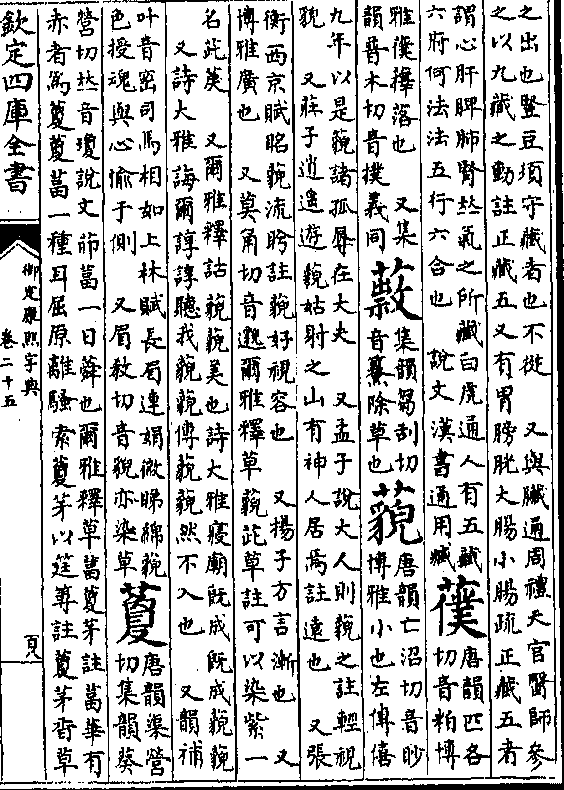 之出也豎豆項守藏者也不從　又與臟通周禮天官醫師參
之以九藏之動註正藏五又有胃膀胱大腸小腸疏正藏五者
謂心肝脾肺腎並氣之所藏白虎通人有五藏
六府何法法五行六合也　說文漢書通用臧
蕧
唐韻匹各
切音粕博
雅蕧擇落也　又集
韻普木切音撲義同
蔱
集韻芻刮切
音纂除草也
藐
唐韻亡沼切音眇
博雅小也左傳僖
九年以是藐諸孤辱在大夫　又孟子說大人則藐之註輕視
貌　又莊子逍遥遊藐姑射之山有神人居焉註遠也　又張
衡西京賦眳藐流眄註藐好視容也　又揚子方言漸也　又
博雅廣也　又莫角切音邈爾雅釋草藐茈草註可以染紫一
名茈萸　又爾雅釋詁藐藐美也詩大雅寢廟旣成旣成藐藐
又詩大雅誨爾諄諄聽我藐藐傳藐藐然不入也　又韻補
叶音密司馬相如上林賦長眉連娟微睇綿藐
色授魂與心愉于側　又眉敎切音貌亦染草
藑
唐韻渠營
切集韻葵
營切並音瓊說文茆葍一曰蕣也爾雅釋草葍藑茅註葍華有
赤者爲藑藑葍一種耳屈原離騷索藑茅以筳篿註藑茅香草
欽定四庫全書
御定康熙字典
卷二十五
頁